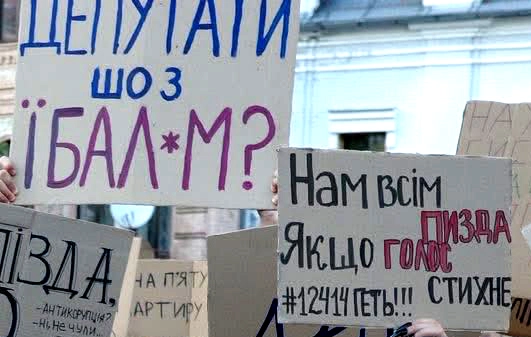 ДЕПУТАТИ
ШО З
ЇБАЛ*М?
Нам всім
ПИЗДА
Якщо ГОЛОС
СТИХНЕ
#12414 ГЕТЬ!!!
ПІЗДА,
-АНТИКОРУПЦІЯ?
-НІ, НЕ ЧУЛИ...
НА П'ЯТУ
АРТИРУ